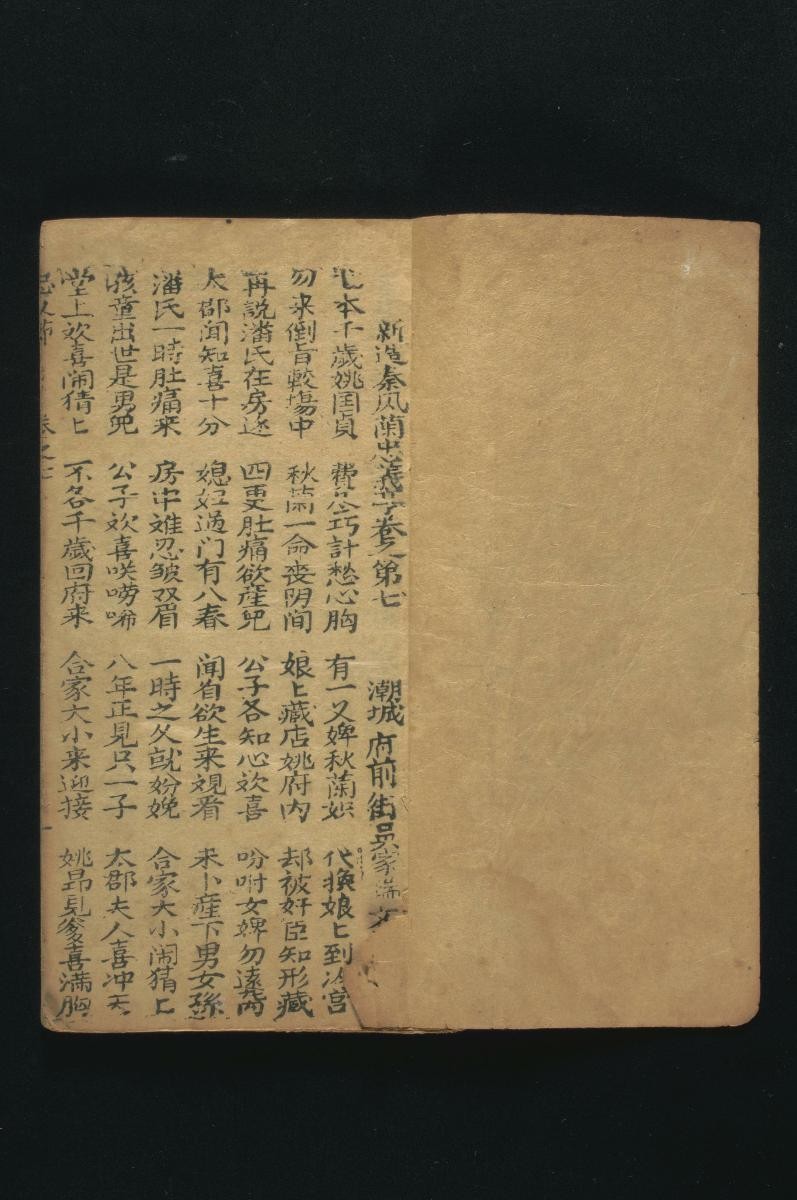 新造秦风蘭忠義亭卷之第七 潮城府前街吳家瑞文
本千歲姚国貞 費尽巧計愁心胸 有一义婢秋蘭娘 代換娘匕到冷宫
勿来倒旨較塲中 秋蘭一命丧阴间 娘匕藏店姚府内 却被奸臣知形藏
再説潘氏在房逐 四更肚痛欲産児 公子各知心欢喜 吩咐女婢勿遠离
太郡闻知喜十分 媳妇過门有八春 闻旨欲生来观看 未卜産下男女孫
潘氏一時肚痛来 房中难忍皱双眉 一時之久就娩 合家大小闹猜匕
孩童出世是男児 公子欢喜唉唠唏 八年正見只一子 太郡夫人喜冲天
堂上欢喜闹猜匕 不各千歲回府来 合家大小来迎接 姚昂見爹喜满胸
卷之七 一